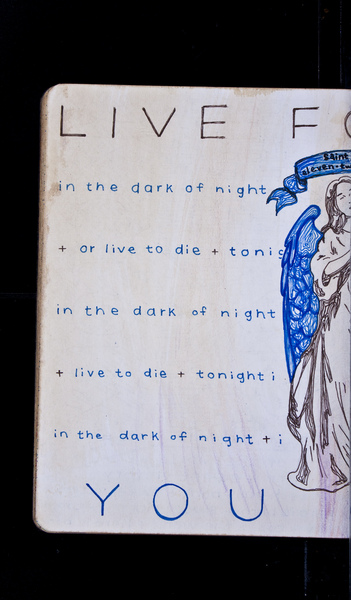 LIVE FO
saint
eleven·tw
in the dark of night
+ or live to die + tonig
in the dark of night
+ live to die + tonight i
in the dark of night + i
YOU